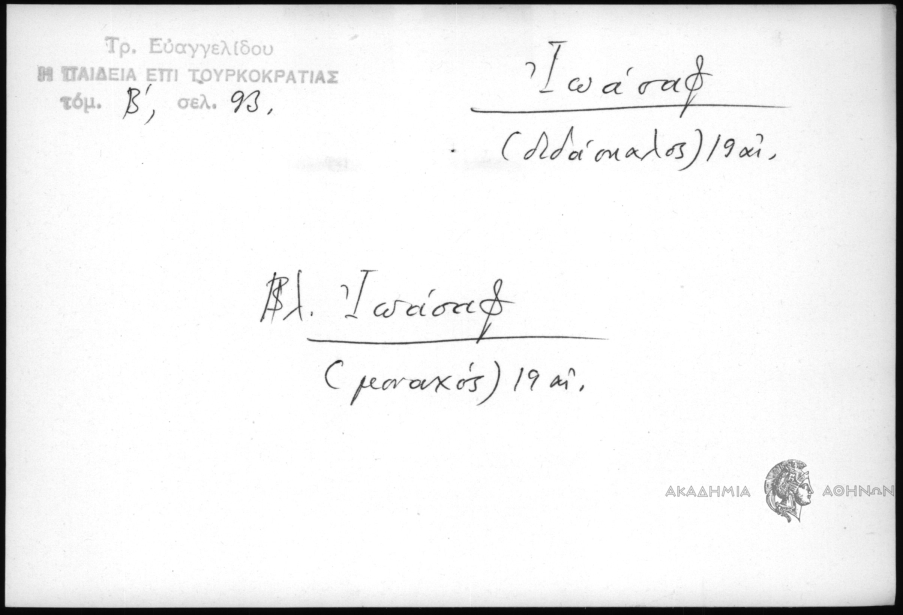 Τρ. Εὐαγγελίδου
Η ΠΑΙΔΕΙΑ ΕΠΙ ΤΟΥΡΚΟΚΡΑΤΙΑΣ
τόμ. Β', σελ. 93.
Ἰωάσαφ
(διδάσκαλος) 19 αἰ.
Βλ. Ἰωάσαφ
(μοναχός) 19 αἰ.
ΑΚΑΔΗΜΙΑ ΑΘΗΝΩΝ